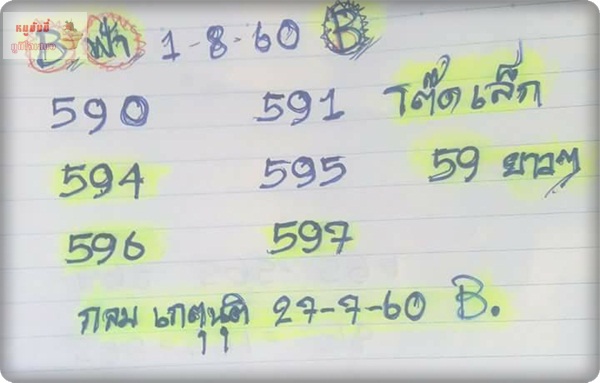 B ฟ้า 1-8-60 B
590 591 โต๊ดเล็ก
594 595 59 ยาวๆ
596 597
27-7-60 B.